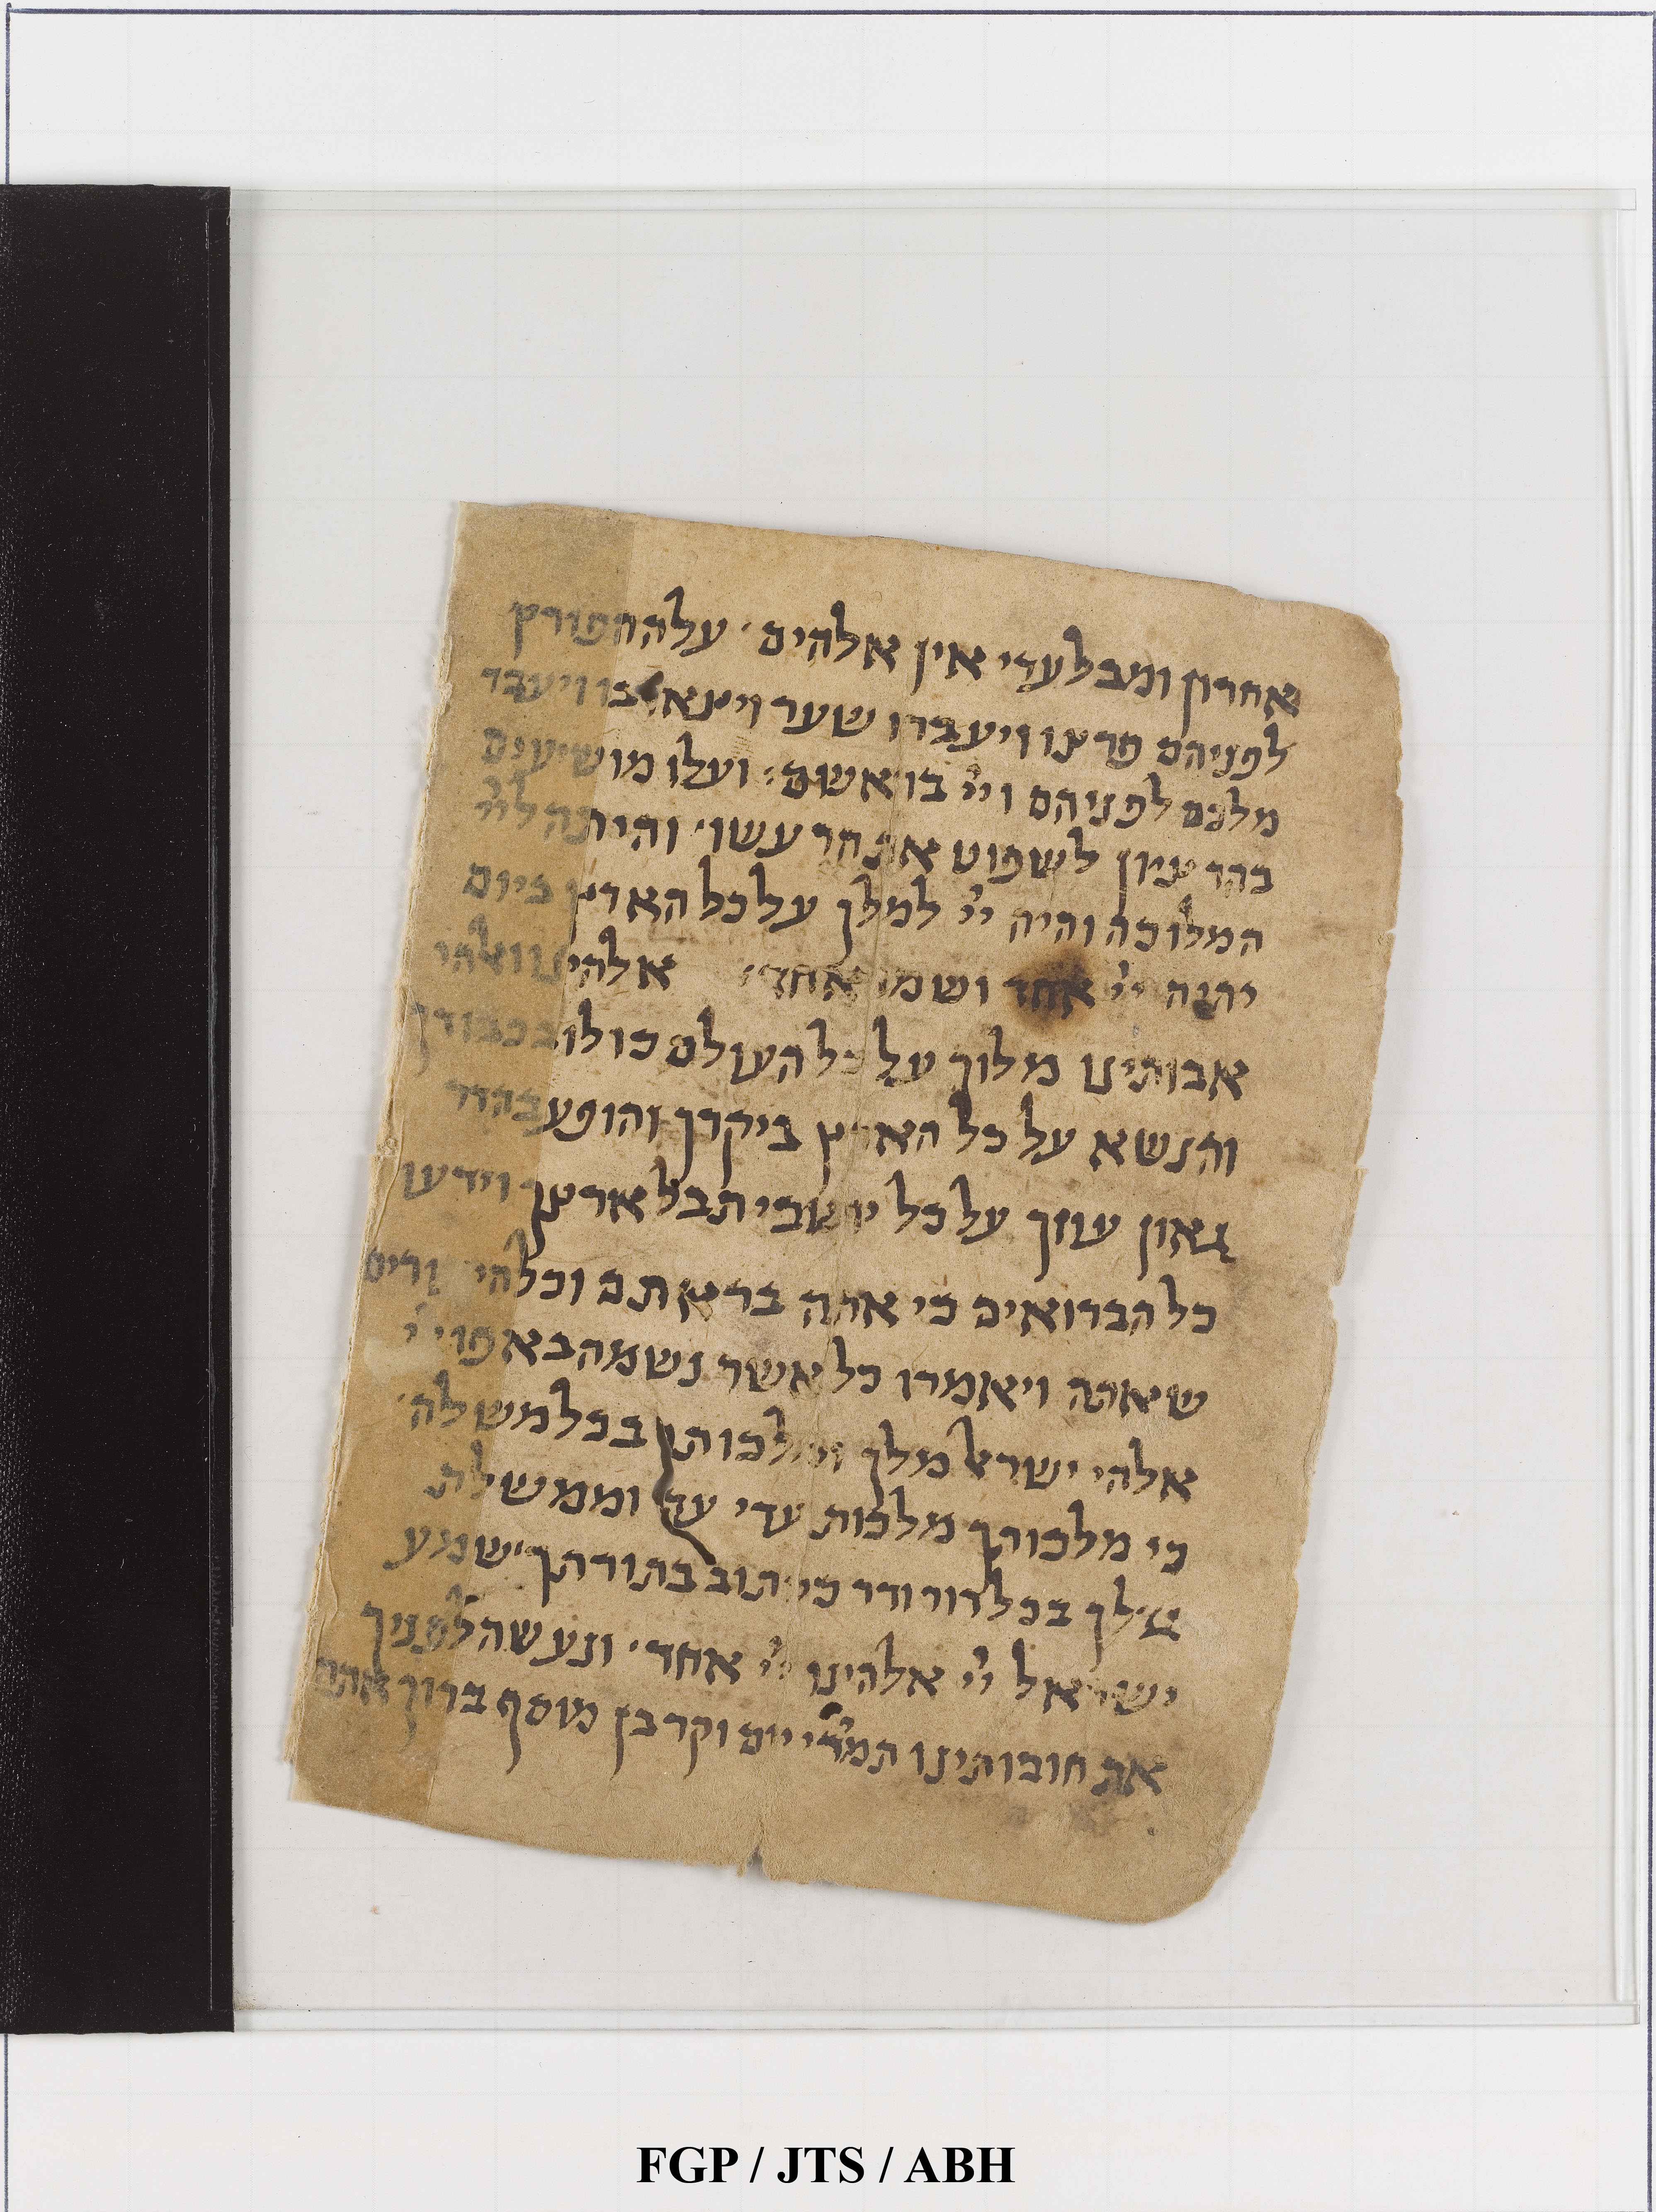 אחרון ומבלעדי אין אלהים עלה הפורץ
לפניהם פרצו ויעברו שער ויצאו בו ויעבר
מלכם לפניהם וייי בראשם ועלו מושיעים
בהר ציון לשפוט את הר עשו והיתה לייי
המלוכה והיה ייי למלך על כל הארץ ביום
יהיה ייי אחד ושמו אחד אלהינו ואלהי
אבותינו מלוך על כל העולם כולו בכבודך
והנשא על כל הארץ ביקרך והופע בהדר
גאון עוזך על כל יושבי תבל ארצך וידעו
כל הברואים כי אתה בראתם וכל
שאתה ויאמרו כל אשר נשמה באפו ייי
אלהי ישראל מלך ומלכותך בכל משלה
כי מלכותך מלכות עדי עד וממשלת
שלך בכל דור ודר ככתוב בתורתך שמע
ישראל ייי אלהינו ייי אחד ונעשה לפניך
את חובותינו תמידי יום וקרבן מוסף ברוך אתה
FGP / JTS / ABH